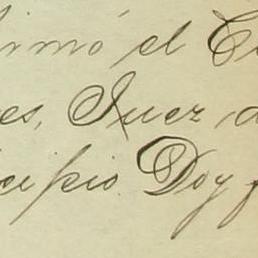 irmó el C
es, Juez, d
cipio Doy f